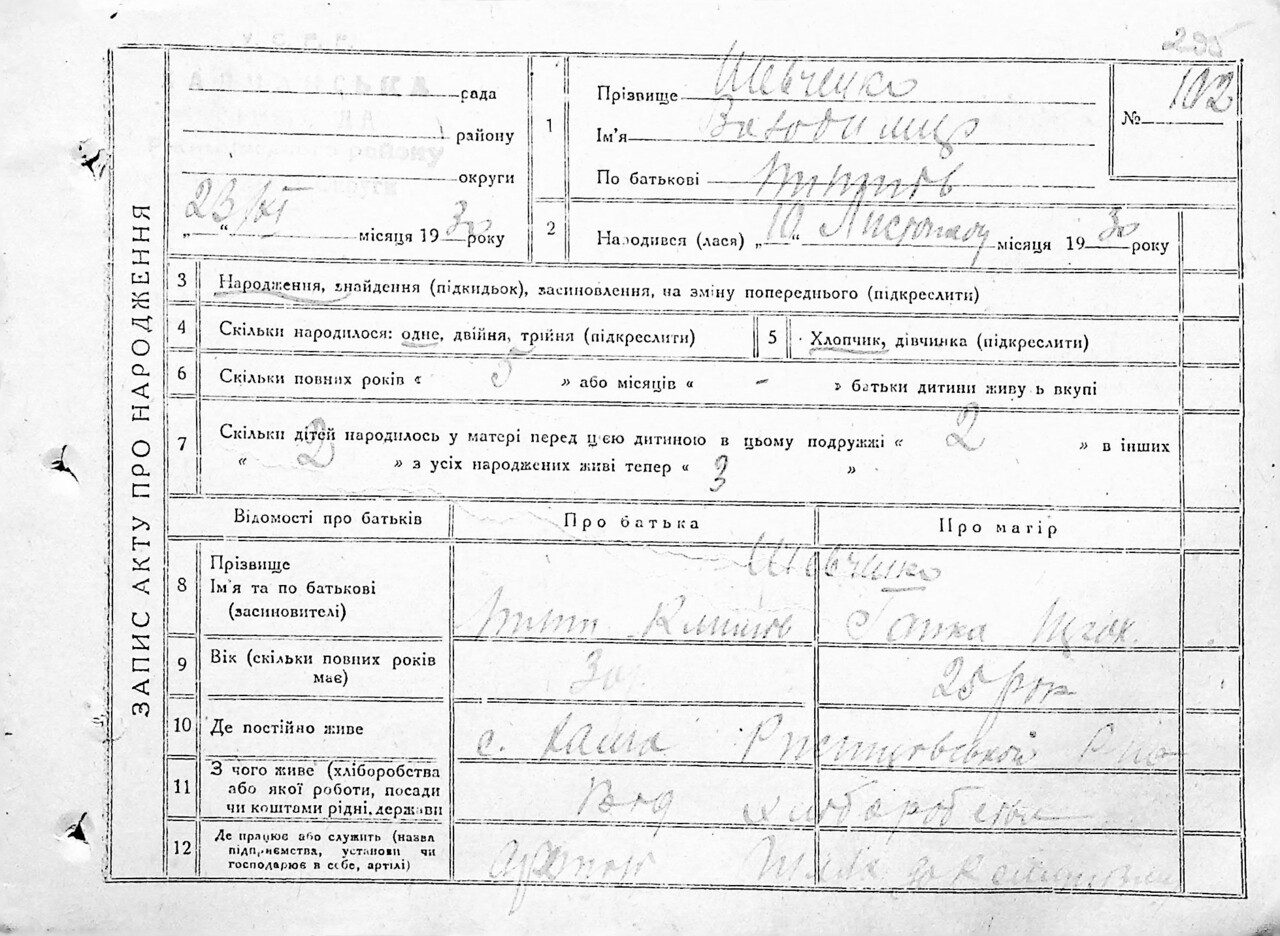 295
У. С. Р. Р.
рада
району
округи
23/XI місяця 1930 року
1
Прізвище Шевченко
Ім'я Володимир
По батькові
№ 102
2
Народився (лася) „10“ Листопаду місяця 1930 року
ЗАПИС АКТУ ПРО НАРОДЖЕННЯ
3 Народження, знайдення (підкидьок), засиновлення, на зміну попереднього (підкреслити)
4 Скільки народилося: одне, двійня, трійня (підкреслити)
5 Хлопчик, дівчинка (підкреслити)
6 Скільки повних років « 5 » або місяців « - » батьки дитини живу ь вкупі
7 Скільки дітей народилось у матері перед цією дитиною в цьому подружжі « 2 » в інших
« 2 » з усіх народжених живі тепер « 3 »
Відомості про батьків
Про батька
Про матір
8 Прізвище
Ім'я та по батькові
(засиновителі)
Шевченко
Ганка
9 Вік (скільки повних років
має)
30
25 рок
10 Де постійно живе
с.
11 З чого живе (хліборобства
або якої роботи, посади
чи коштами рідні, держави
Від хліборобства
12 Де працює або служить (назва
підприємства, установи чи
господарює в себе, артілі)